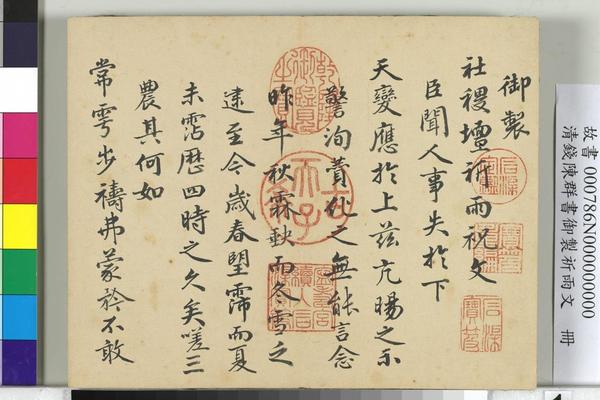 御製
社稷壇祈雨祝文
臣聞人事失於下
天變應於上茲亢暘之示
警洵責化之無能言念
昨年秋霖缺而冬雪之
逮至今歲春望霈而夏
未霑歷四時之久矣嗟三
農其何如
常雩步禱弗蒙矜不敢
故書 000786N000000000
清錢陳群書御製祈雨文 冊